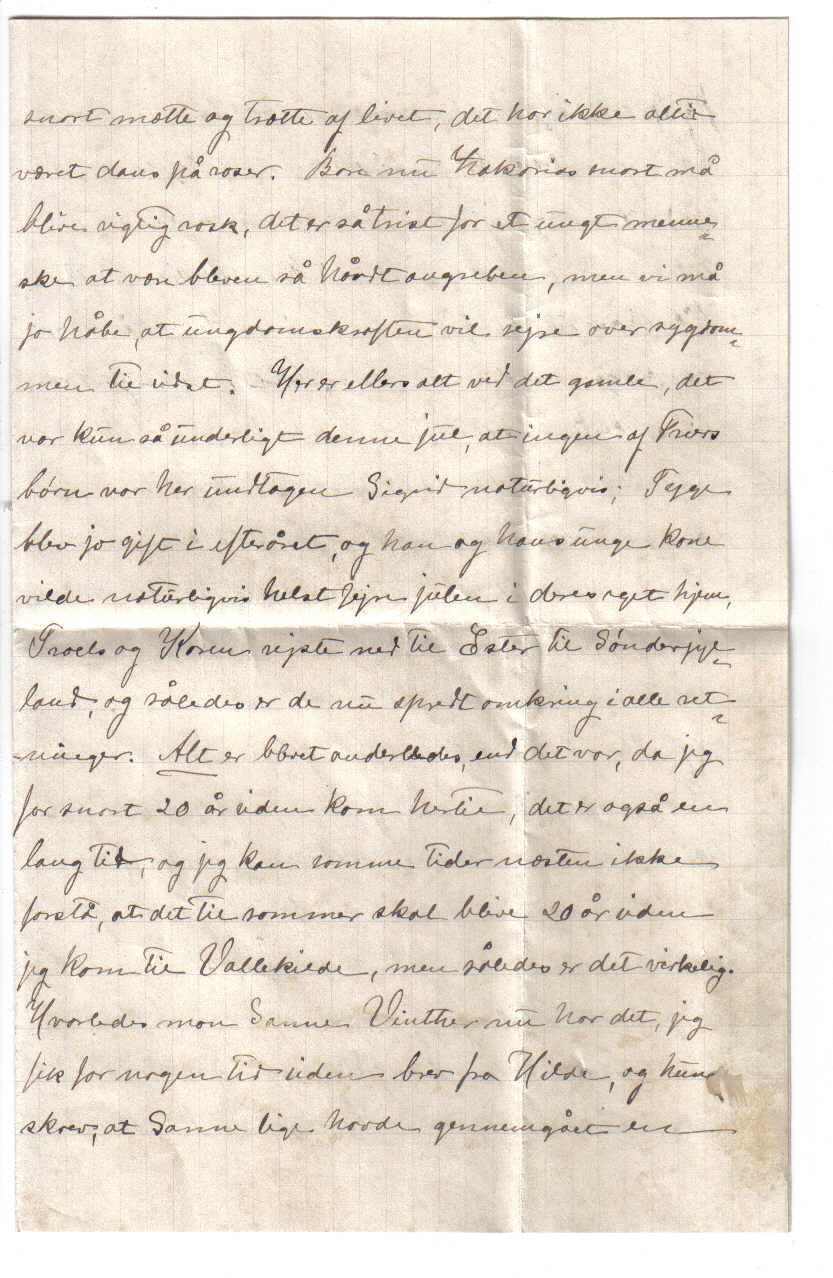 snart mætte og trætte af livet, det har ikke altid
været dans på roser. Bare nu Zakarias snart må
blive rigtig rask, det er så trist for et ungt menne-
ske at være bleven så hårdt angreben, men vi må
jo håbe, at ungdomskraften vil sejre over sygdom-
men til sidst. Her er ellers alt ved det gamle, det
var kun så underligt denne jul, at ingen af Triers
børn var her undtagen Sigrid naturligvis; Tyge
blev jo gift i efteråret, og han og hans unge kone
vilde naturligvis helst fejre julen i deres eget hjem,
Troels og Karen rejste ned til Ester til Sønderjyl-
land, og således er de nu spredt omkring i alle ret-
ninger. Alt er blevet anderledes, end det var, da jeg
for snart 20 år siden kom hertil, det er også en
lang tid, og jeg kan somme tider næsten ikke
forstå, at det til sommer skal blive 20 år siden
jeg kom til Vallekilde, men således er det virkelig.
Hvorledes mon Sanne Vinther nu har det, jeg
fik for nogen tid siden brev fra Hilde, og hun
skrev, at Sanne lige havde gennemgået en